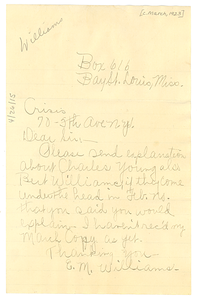 [c. March, 1915]
William
Box 616
Bay St. Louis, Miss.
4/26/15
Crisis
70 - 5th Ave N.Y.
Dear Sir -
Please send explanation
about Charles Young also
Bert Williams, if they come
under the head in Feb. No.
that you said you would
explain. I haven't rec'd my
March Copy as yet.
Thanking You
E. M. Williams -